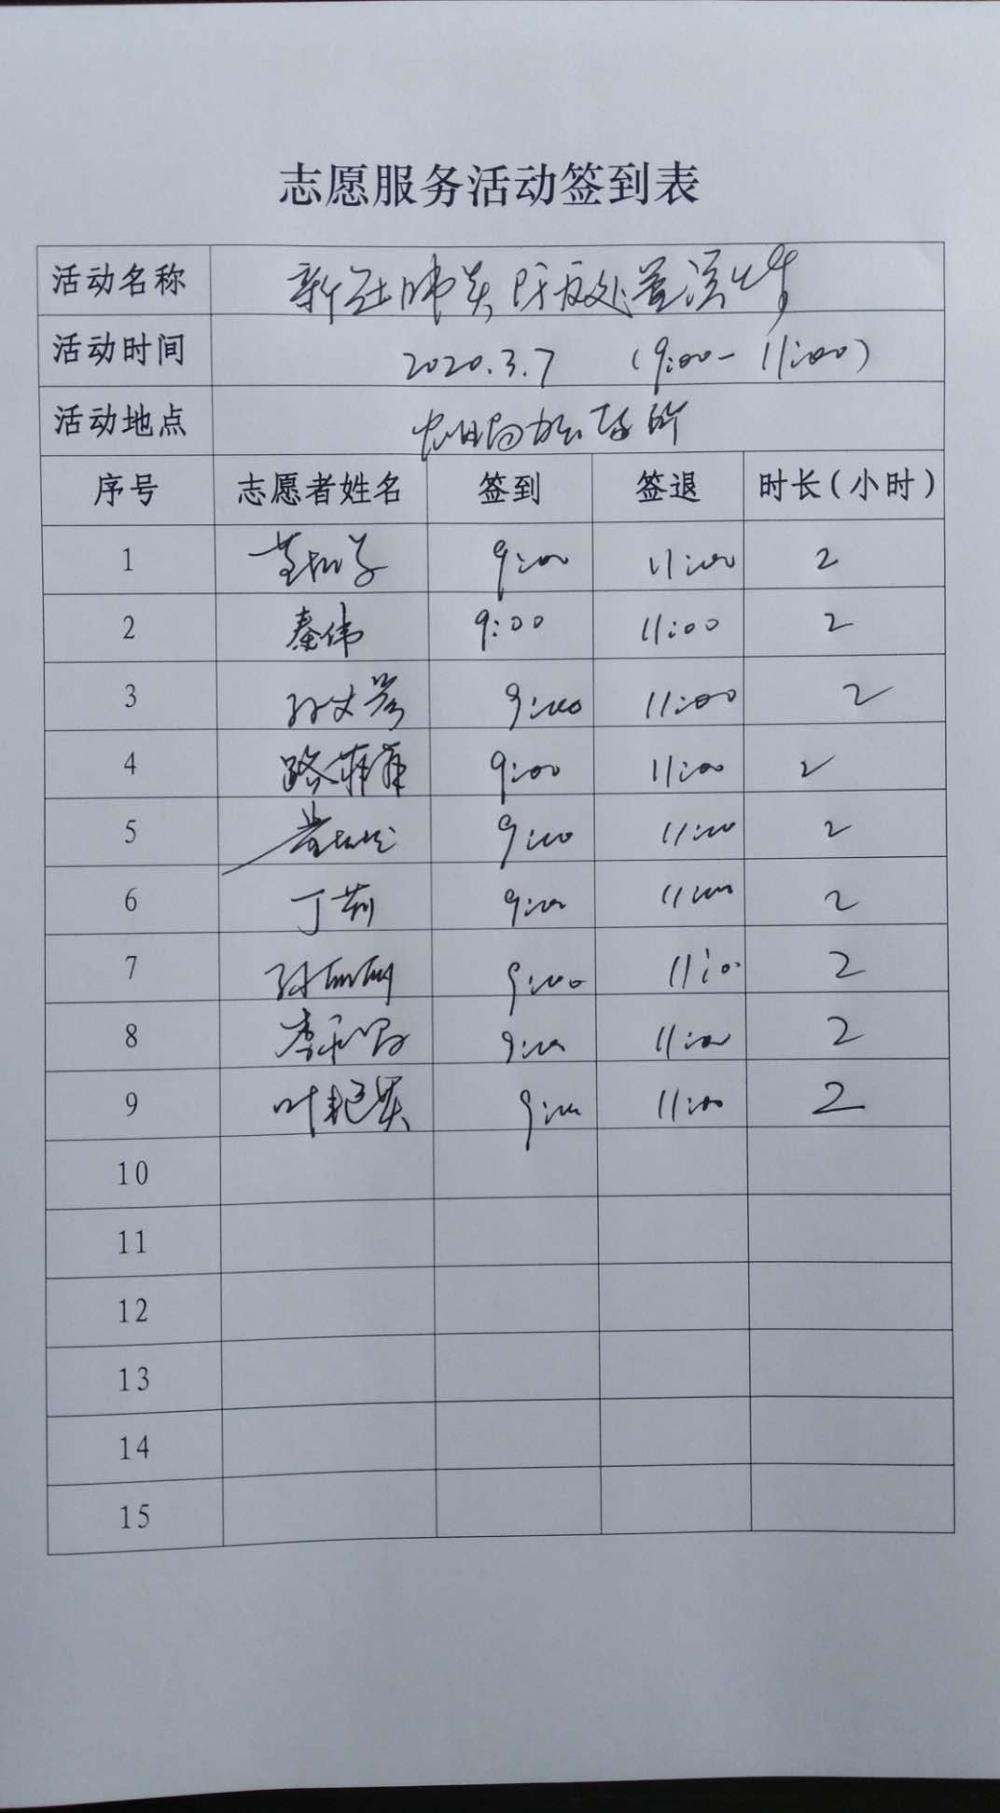 志愿服务活动签到表
活动名称 新冠肺炎防疫处置演练
活动时间 2020.3.7 (9:00-11:00)
活动地点
序号 志愿者姓名 签到 签退 时长(小时)
1 9:00 11:00 2
2 秦伟 9:00 11:00 2
3 9:00 11:00 2
4 路菲菲 9:00 11:00 2
5 9:00 11:00 2
6 丁莉 9:00 11:00 2
7 孙丽丽 9:00 11:00 2
8 9:00 11:00 2
9 叶艳英 9:00 11:00 2
10
11
12
13
14
15